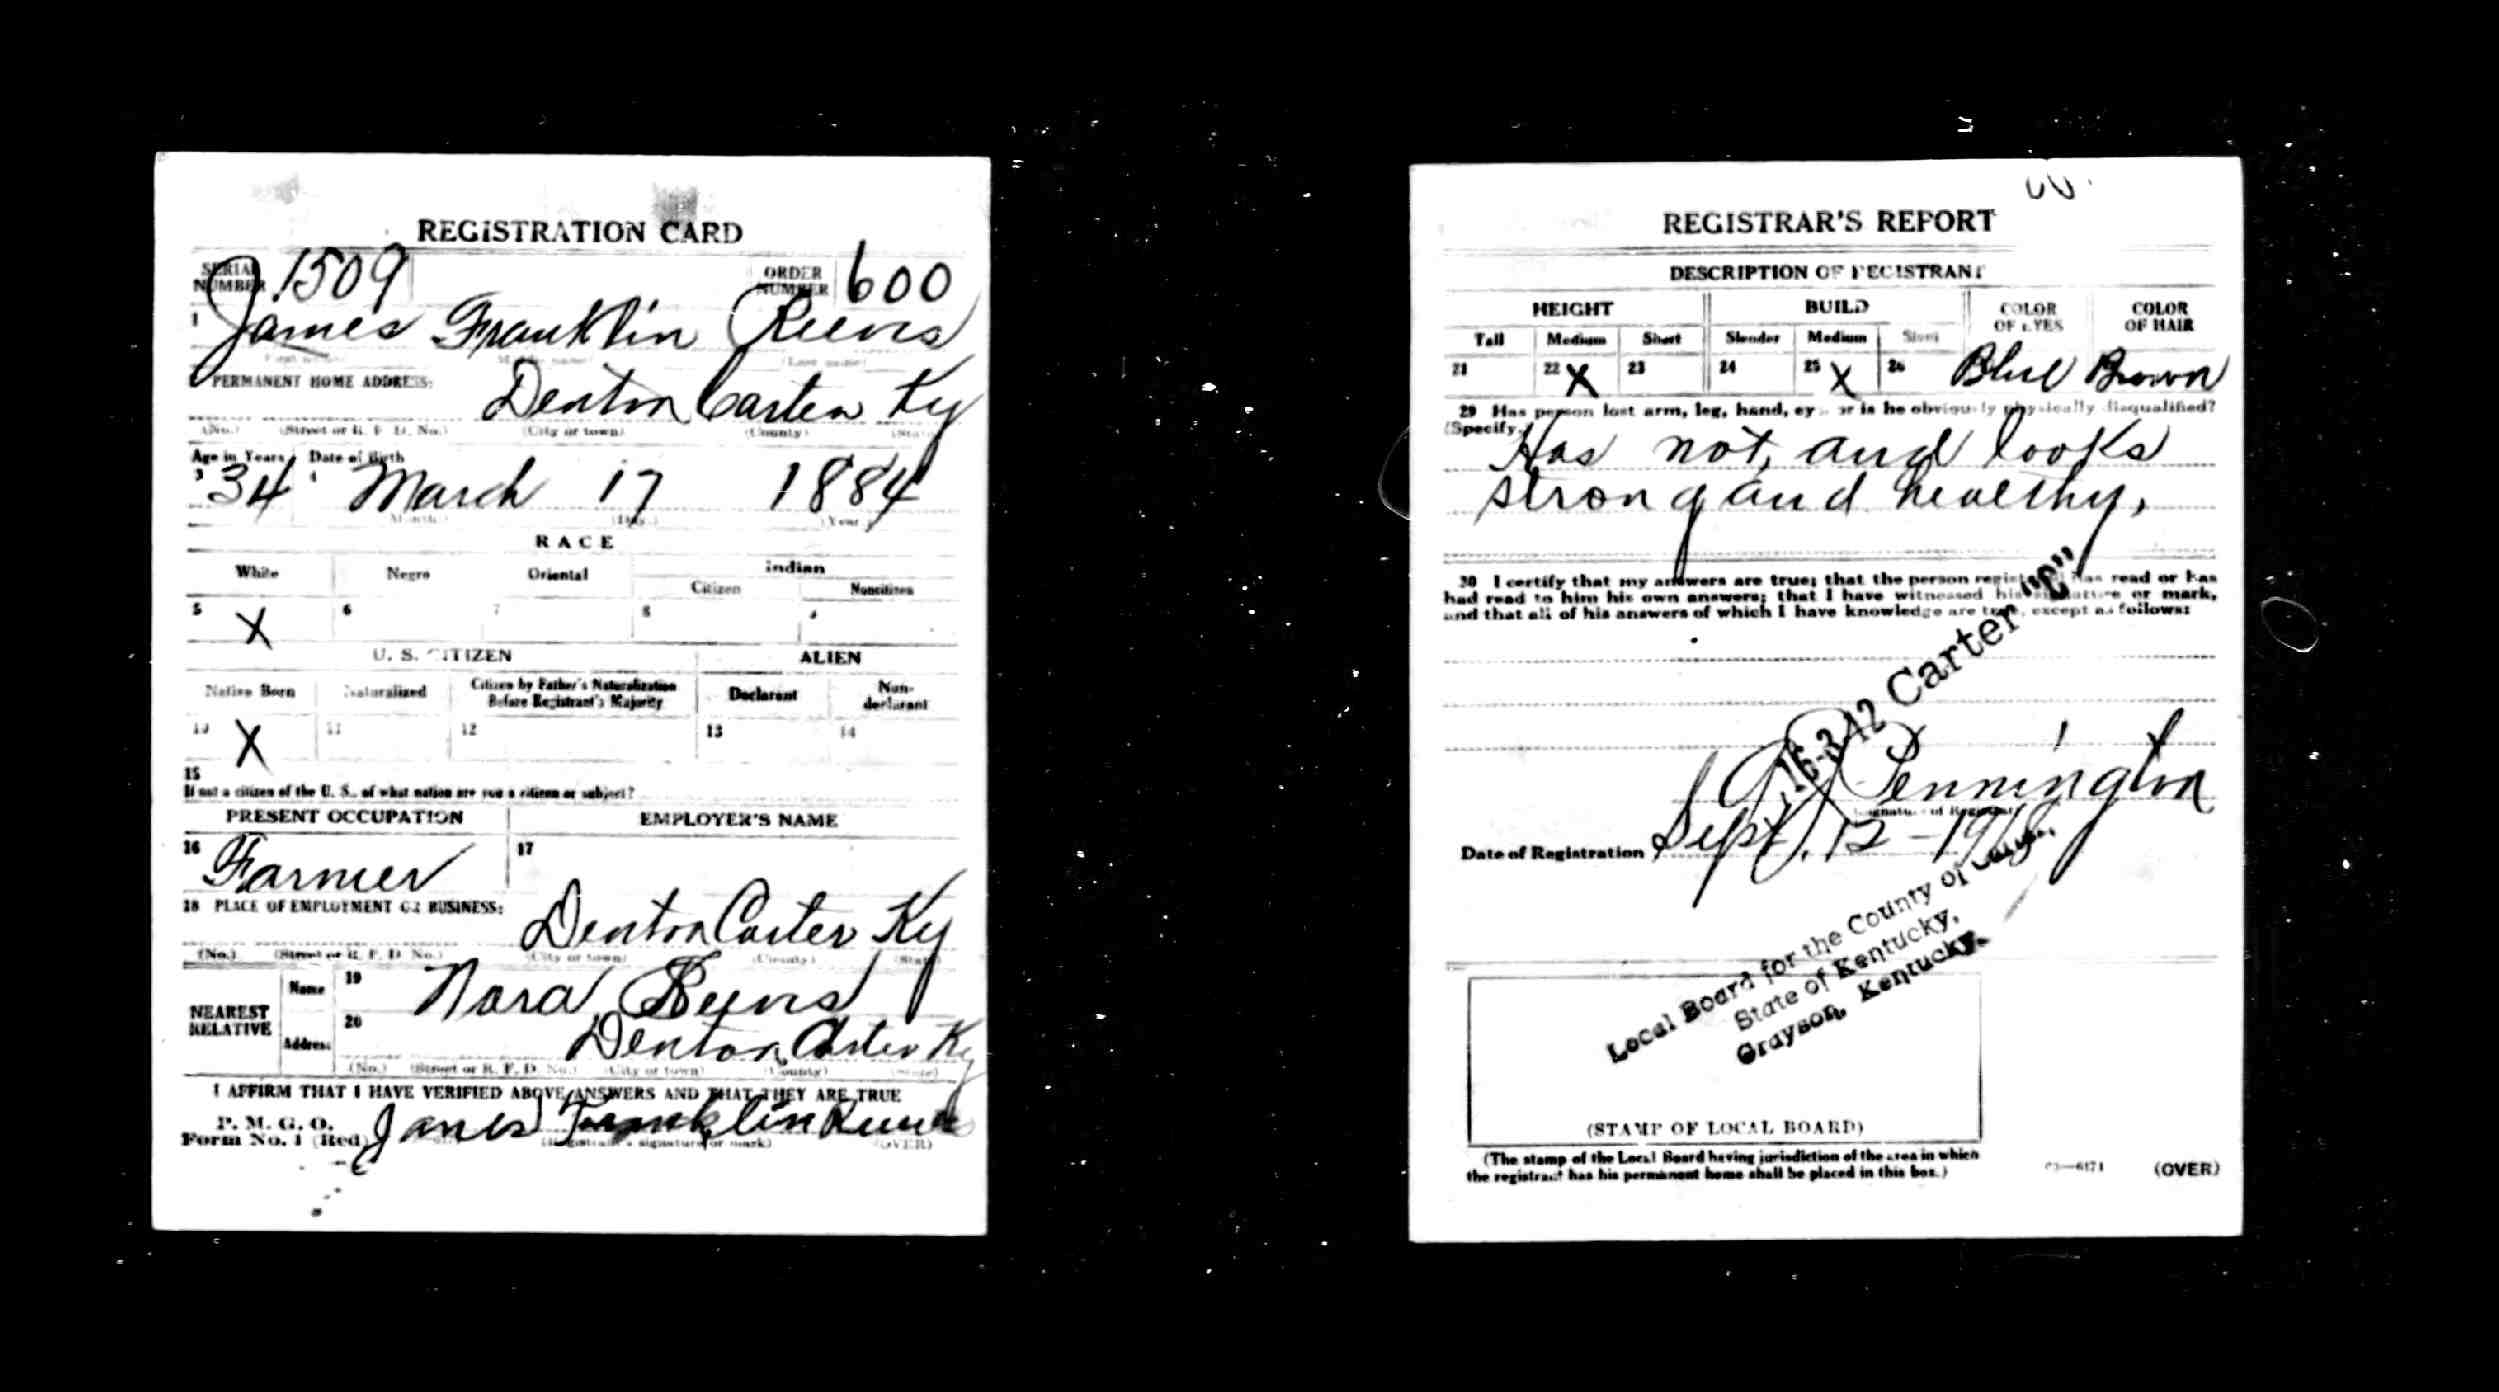 REGISTRATION CARD
SERIAL NUMBER 1509 ORDER NUMBER 600
1 James Franklin Reeves
(First name) (Middle name) (Last name)
PERMANENT HOME ADDRESS:
Denton Carter Ky
(No.) (Street or R. F. D. No.) (City or town) (County) (State)
Age in Years Date of Birth
3 34 4 March 17 1884
(Month) (Day) (Year)
RACE
White Negro Oriental Indian
Citizen Noncitizen
5 X 6 7 8 9
U. S. CITIZEN ALIEN
Native Born Naturalized Citizen by Father's Naturalization Before Registrant's Majority Declarant Non-declarant
10 X 11 12 13 14
15
If not a citizen of the U. S., of what nation are you a citizen or subject?
PRESENT OCCUPATION EMPLOYER'S NAME
16 Farmer 17
18 PLACE OF EMPLOYMENT OR BUSINESS:
Denton Carter Ky
(No.) (Street or R. F. D. No.) (City or town) (County) (State)
NEAREST RELATIVE Name 19 Nora Reeves
Address 20 Denton Carter Ky
(No.) (Street or R. F. D. No.) (City or town) (County) (State)
I AFFIRM THAT I HAVE VERIFIED ABOVE ANSWERS AND THAT THEY ARE TRUE
P. M. G. O.
Form No. 1 (Red) James Franklin Reeves
(Registrant's signature or mark) (OVER)
REGISTRAR'S REPORT
DESCRIPTION OF REGISTRANT
HEIGHT BUILD COLOR OF EYES COLOR OF HAIR
Tall Medium Short Slender Medium Stout
21 22 X 23 24 25 X 26 Blue Brown
29 Has person lost arm, leg, hand, eye, or is he obviously physically disqualified?
(Specify.)
Has not, and looks
strong and healthy,
30 I certify that my answers are true; that the person registered has read or has
had read to him his own answers; that I have witnessed his signature or mark,
and that all of his answers of which I have knowledge are true, except as follows:
16-3-12 Carter "C"
Pennington
(Signature of Registrar)
Date of Registration Sept. 12 - 1918
Local Board for the County of Carter,
State of Kentucky,
Grayson, Kentucky.
(STAMP OF LOCAL BOARD)
(The stamp of the Local Board having jurisdiction of the area in which
the registrant has his permanent home shall be placed in this box.)
03—6171 (OVER)